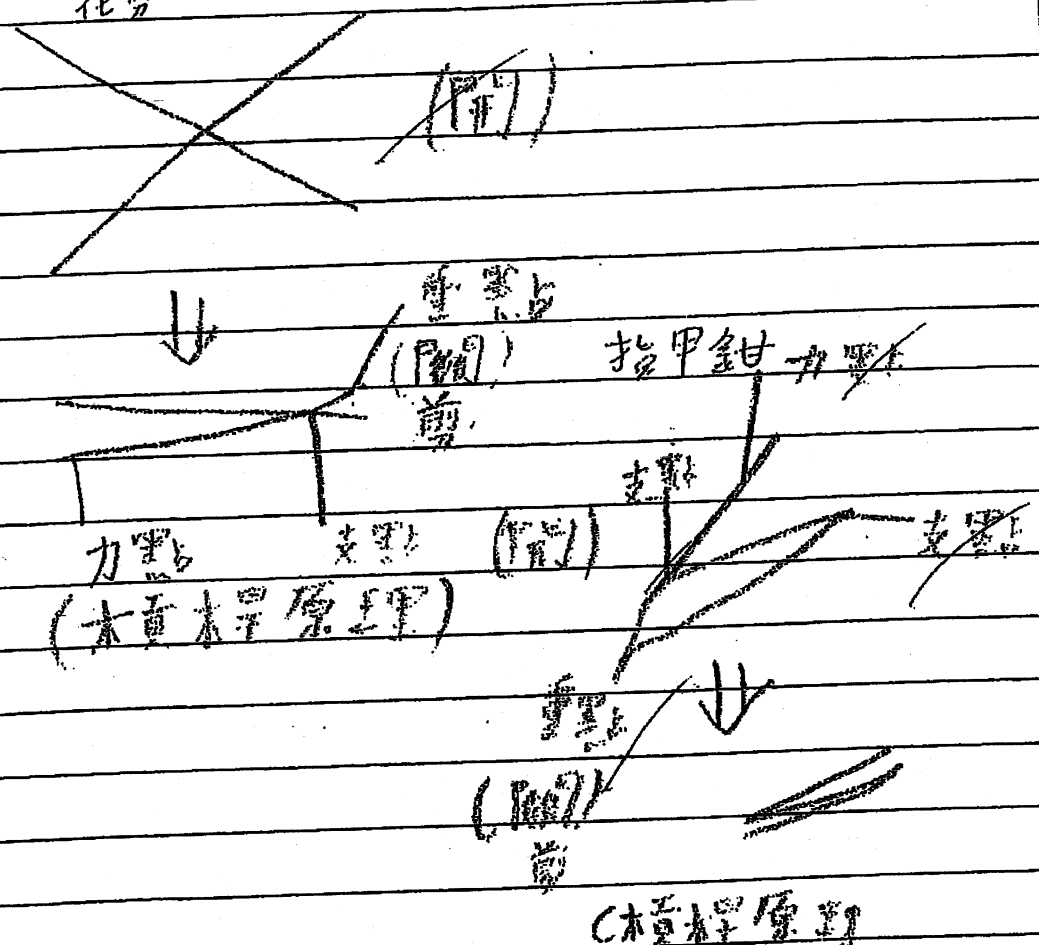 花剪
(開)
重點
(關)
剪
指甲鉗 力點
支點
力點 支點 (開) 支點
(槓桿原理)
重點
(關)
(槓桿原理